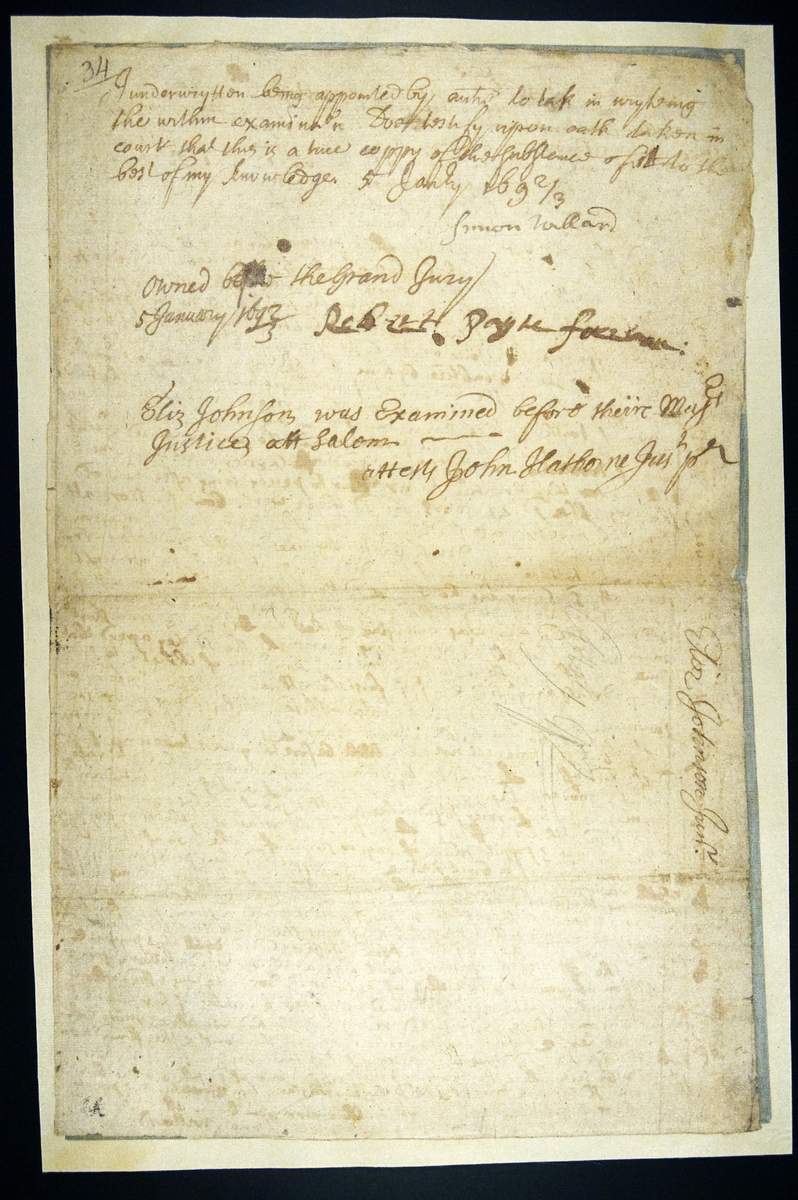 34
I underwrytten being appointed by authr to tak in wryteing
the within examinatn Doe testify vppon oath taken in
court that this is a true coppy of the substance of it to the
best of my knowledge. 5t Janry 1692/3
Simon Willard
Owned before the Grand Jury
5 January 1692/3 Robert Payne foreman:
Eliz Johnson was Examined before theire Majsts
Justices att Salem
attests John Hathorne Just pr
Eliz Johnson Junr.